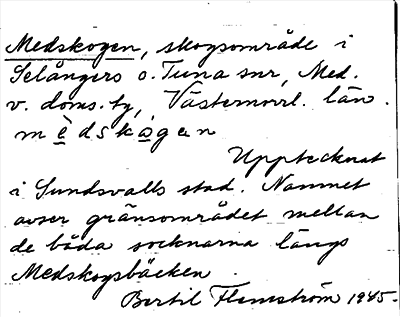 Medskogen, skogsområde i
Selångers o. Tuna snr, Med.
v. doms. tg, Västernorrl. län.
mèdskogen
Upptecknat
i Sundsvalls stad. Namnet
avser gränsområdet mellan
de båda socknarna längs
Medskogsbäcken.
Bertil Flemström 1945.